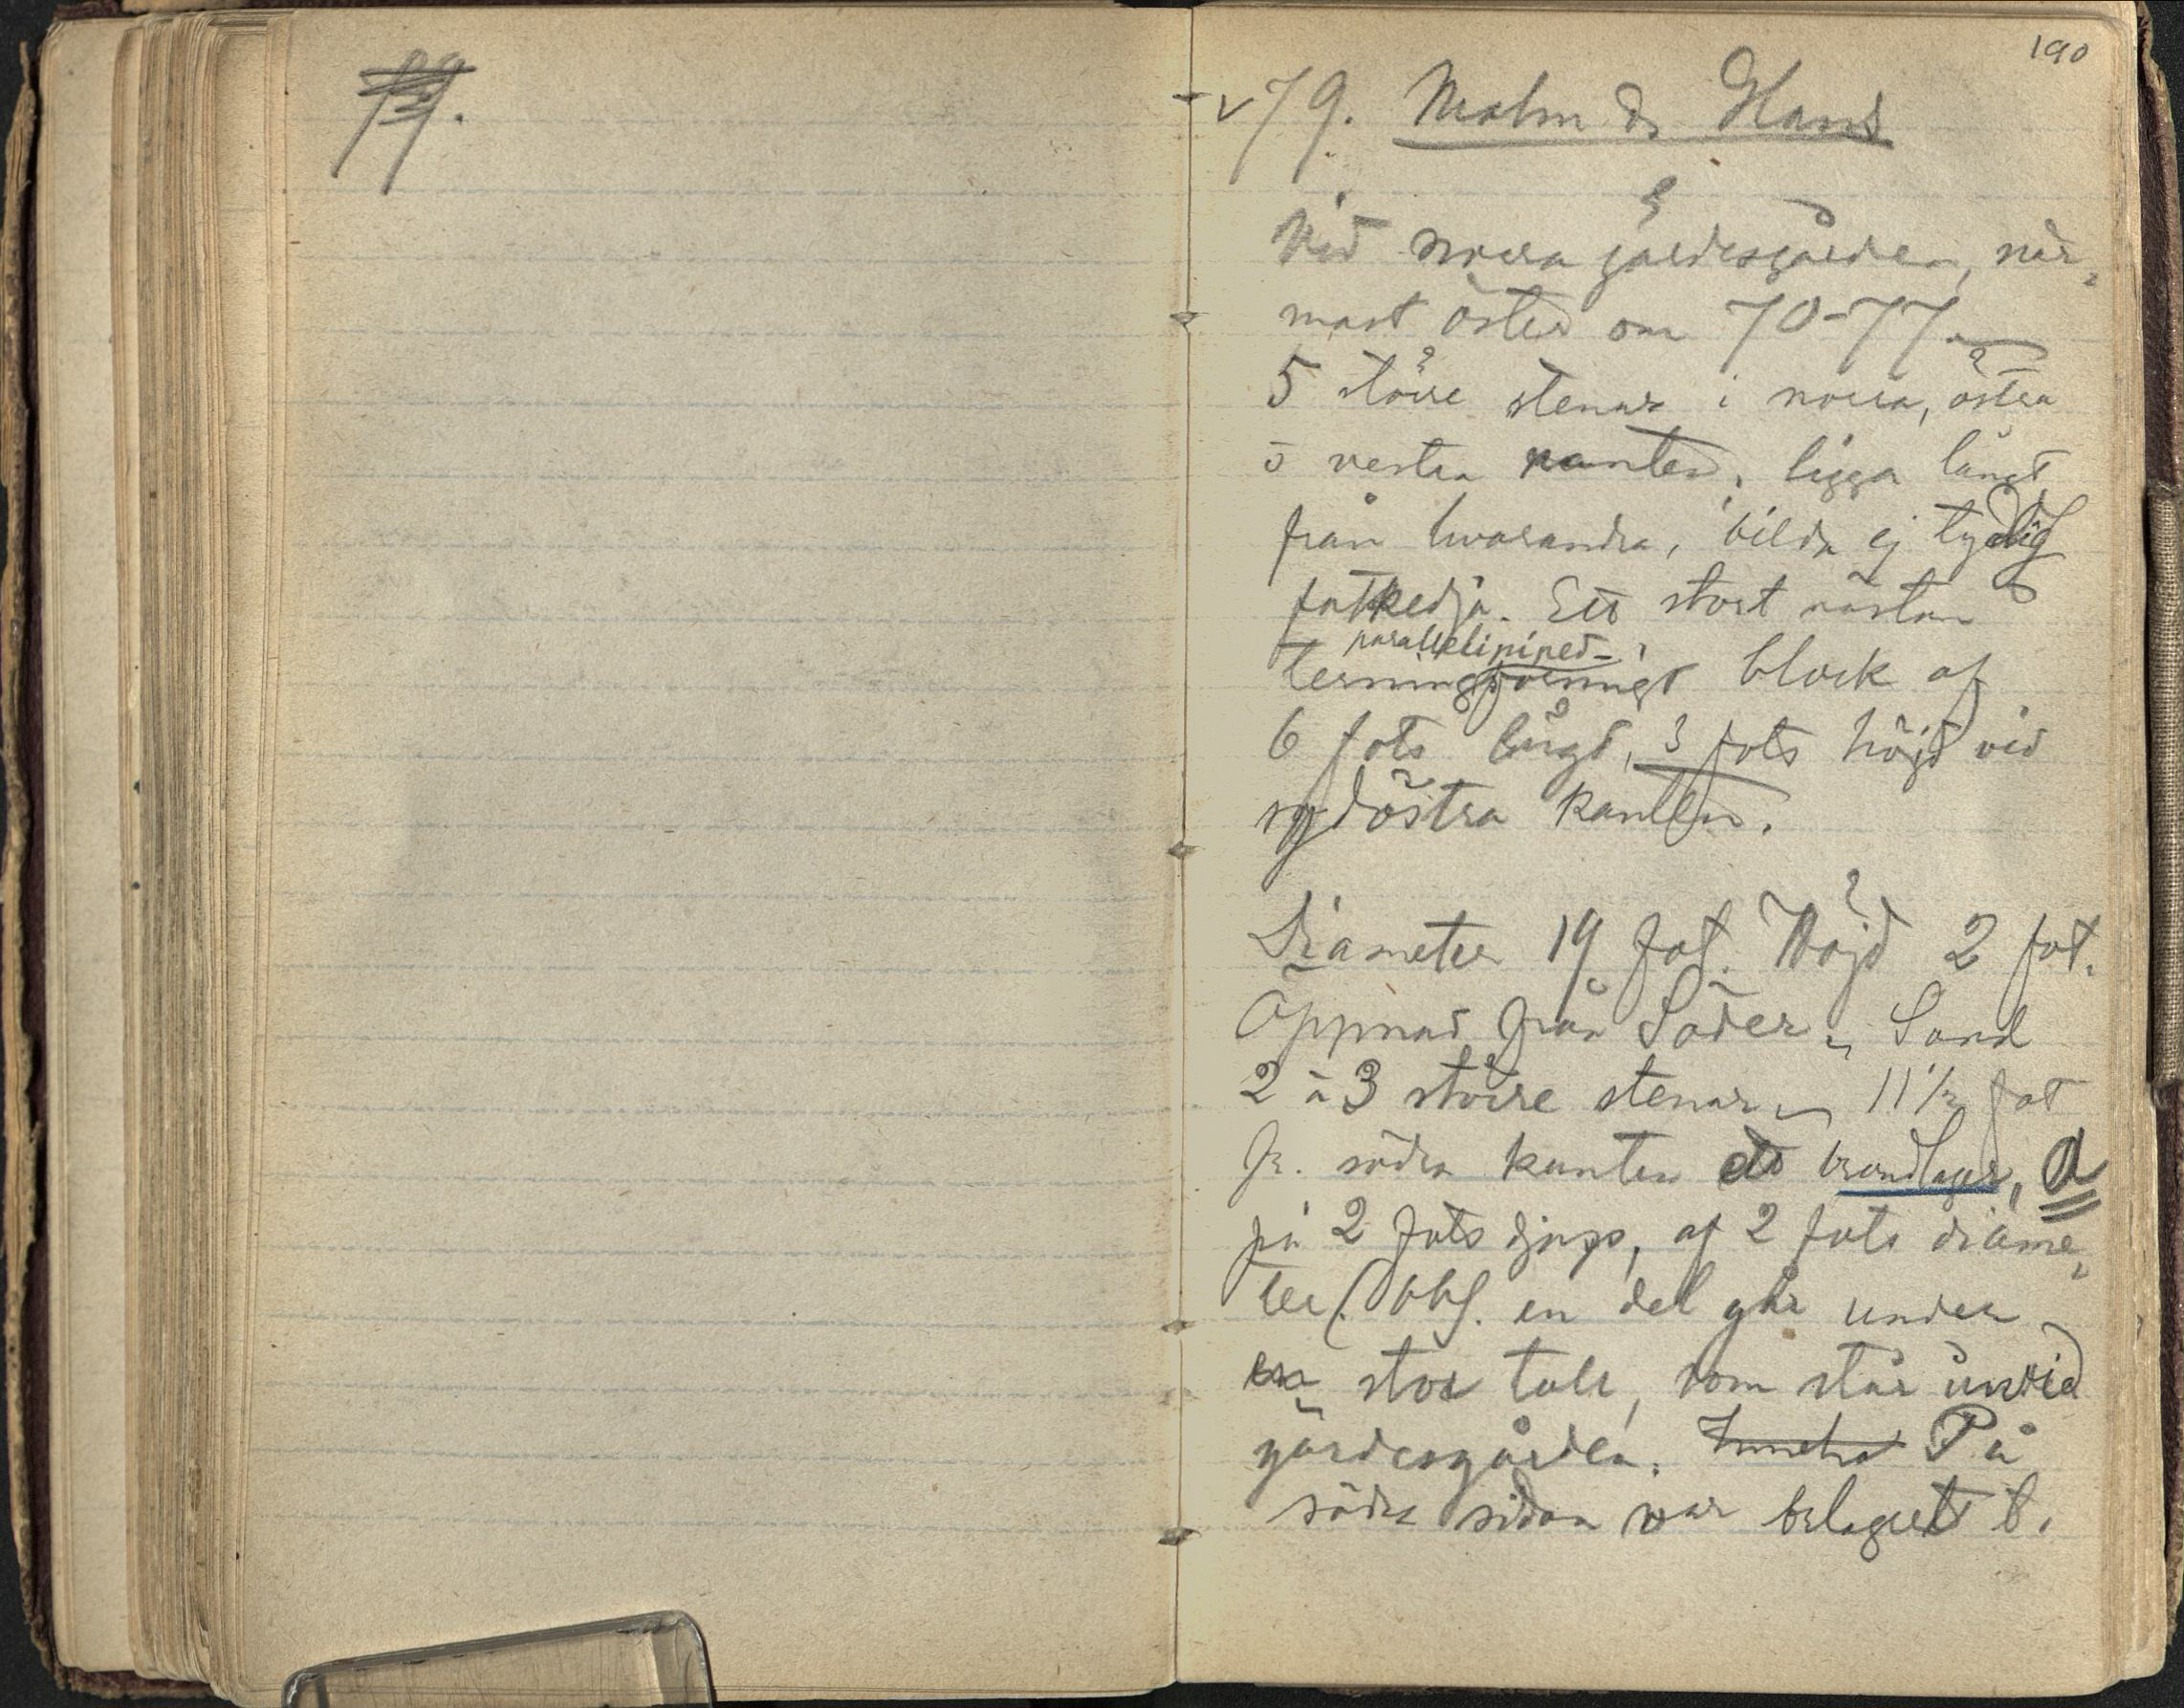 79.
190
√79. Malm & Hans
Vid norra gärdesgården, när-
mast öster om 70-77.
5 större stenar i norra, östra
o vestra kanten, ligga långt
från hvarandra, bilda ej tydlig
fotkedja. Ett stort nästan
parallelipiped-
terningformigt block af
6 fots längd, 3 fots höjd vid
sydöstra kanten.
Diameter 19 fot. Höjd 2 fot.
Öppnad från Söder. Sand
2 à 3 större stenar 11½ fot
fr. södra kanten ett brandlager, a
på 2 fots djup, af 2 fots diame-
ter (. Obs. en del går under
en stor tall, som står invid
gärdesgården. Inneha På
södra sidan var belaget b.